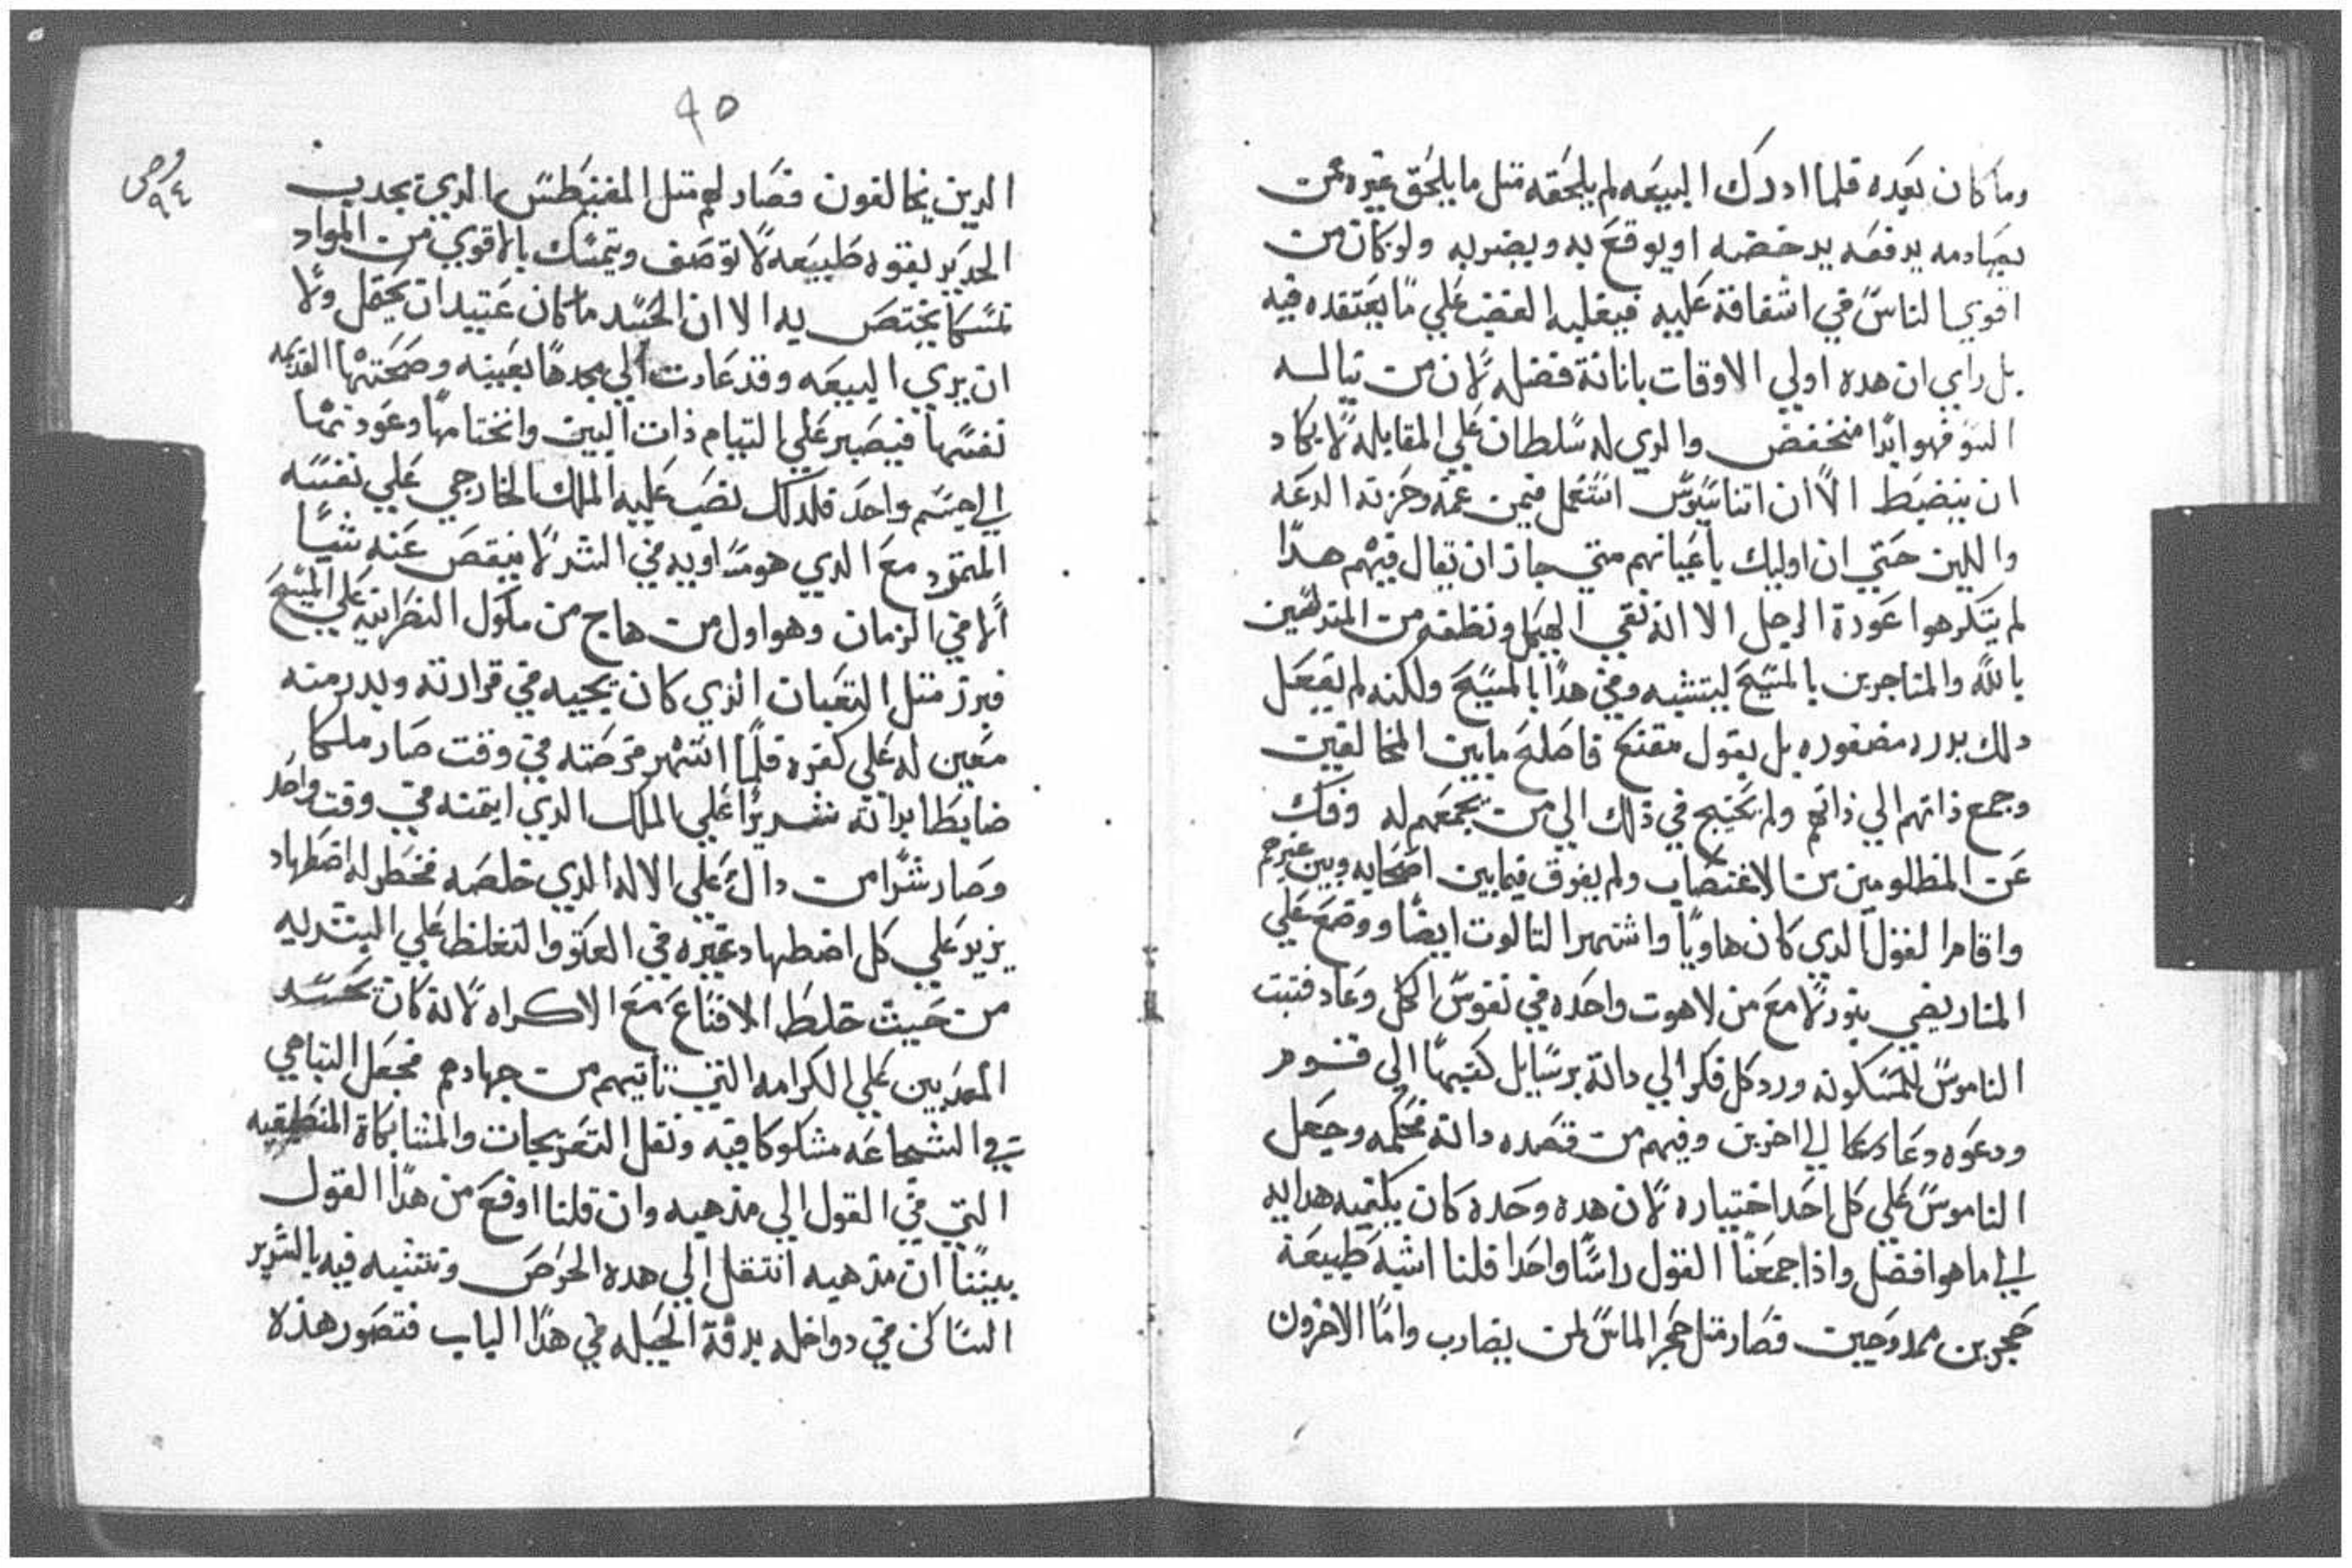 وما كان بعده فلما ادرك البيعه لم يلحقه متل ما يلحق غيره عمن
يصادمه يدفعه يدحضه او يوقع به ويضر به ولو كان من
اقوي الناس في اشفاقة عليه فيغلبه الغضب علي ما يعتقده فيه
بل راي ان هده اولي الاوقات بابانة فضله لان من يناله
السو فهو ابدا منخفض والدي له سلطان علي المقابله لا يكاد
ان ينضبط الا ان اتناسيوس استعمل فيمن غمه وحزنه الدعه
واللين حتي ان اوليك باعيانهم متي جاز ان يقال فيهم هدا
لم يتكرهوا عودة الرجل الا انه نقي الهيكل ونظفه من المتدلسين
بالله والمتاجرين بالمسيح ليتشبه وفي هدا بالمسيح ولكنه لم يفعل
دلك بدره مضفوره بل بقول مقنع فاصلح ما بين المخالفين
وجمع ذاتهم الي ذاتهم ولم يحتيج في ذلك الي من يجمعهم له وفك
عن المظلومين من الاغتصاب ولم يفرق فيما بين اصحابه وبين غيرهم
واقام القول الدي كان هاويا واشتهر التالوت ايضا ووضع علي
المنار يضي بنور لامع من لاهوت واحده في نفوس الكل وعاد فتبت
الناموس للمسكونه ورد كل فكر الي داته برسايل كتبها الي قوم
ودعوه دعا الي اخرين وفيهم من قصده داته فحكمه وجعل
الناموس علي كل احد اختياره لان هده وحده كان يكفيه هدايه
الي ما هو افضل واذا جمعنا القول راسا واحدا قلنا اشبه طبيعة
حجرين ممدوحين فصار متل حجر الماس لمن يضارب واما الاخرون
٤٥
الدين يخالفون فصار لهم متل المغنيطس الدي يجدب
الحديد بقوه طبيعه لا توصف ويتمسك بالاقوي من المواد
تمسكا يختص به الا ان الحسد ما كان عتيد ان يحتمل ولا
ان يري البيعه وقد عادت الي مجدها بعينه وصحتها القديمه
نفسها فيصبر علي التيام ذات البين وانختامها وعودتها
الي جسم واحد فلدلك نصب عليه الملك الخارجي علي نفسه
المتمرد مع الدي هو مساويه في الشر لا ينقص عنه شيا
الا في الزمان وهو اول من هاج من ملوك النصرانيه علي المسيح
فبرز متل التعبان الذي كان يجيبه في قرارته وبدر منه
معين له علي كفره فلما انتهز فرصته في وقت صار ملكا
ضابطا بدا انه شديرا علي الملك الدي ايتمنه في وقت واحد
وصار شرا من داك علي الاله الدي خلصه فخطر له اضطهاد
يزيد علي كل اضطهاد غيره في العتو والتغلظ علي البشريه
من حيث خلط الاقناع مع الاكراه لانه كان يحسد
المعدبين علي الكرامه التي تاتيهم من جهادهم فجعل التباهي
في الشجاعه مشكوكا فيه ونقل التعريجات والمشابكاة المنطيقيه
التي في القول الي مذهبه وان قلنا اوقع من هدا القول
بيننا ان مذهبه انتقل الي هده الحرص وتشبه فيه بالشرير
الساكن في دواخله بدقة الحيله في هدا الباب فتصور هذه